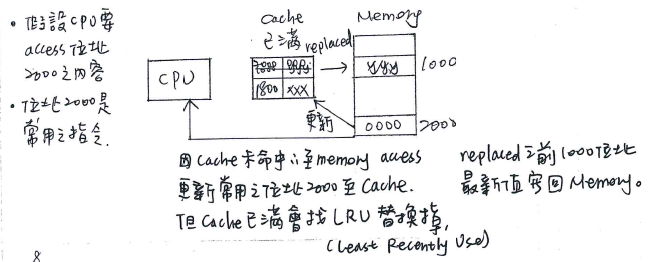 • 假設CPU要
access位址
2000之內容
• 位址2000是
常用之指令.
Cache
已滿
replaced
Memory
CPU
1800 xxx
yyy
1000
更新
0000
2000
因Cache未命中∴至memory access
更新常用之位址2000至Cache.
但Cache已滿會找LRU替換掉,
(Least Recently Use)
replaced之前1000位址
最新值寫回Memory。